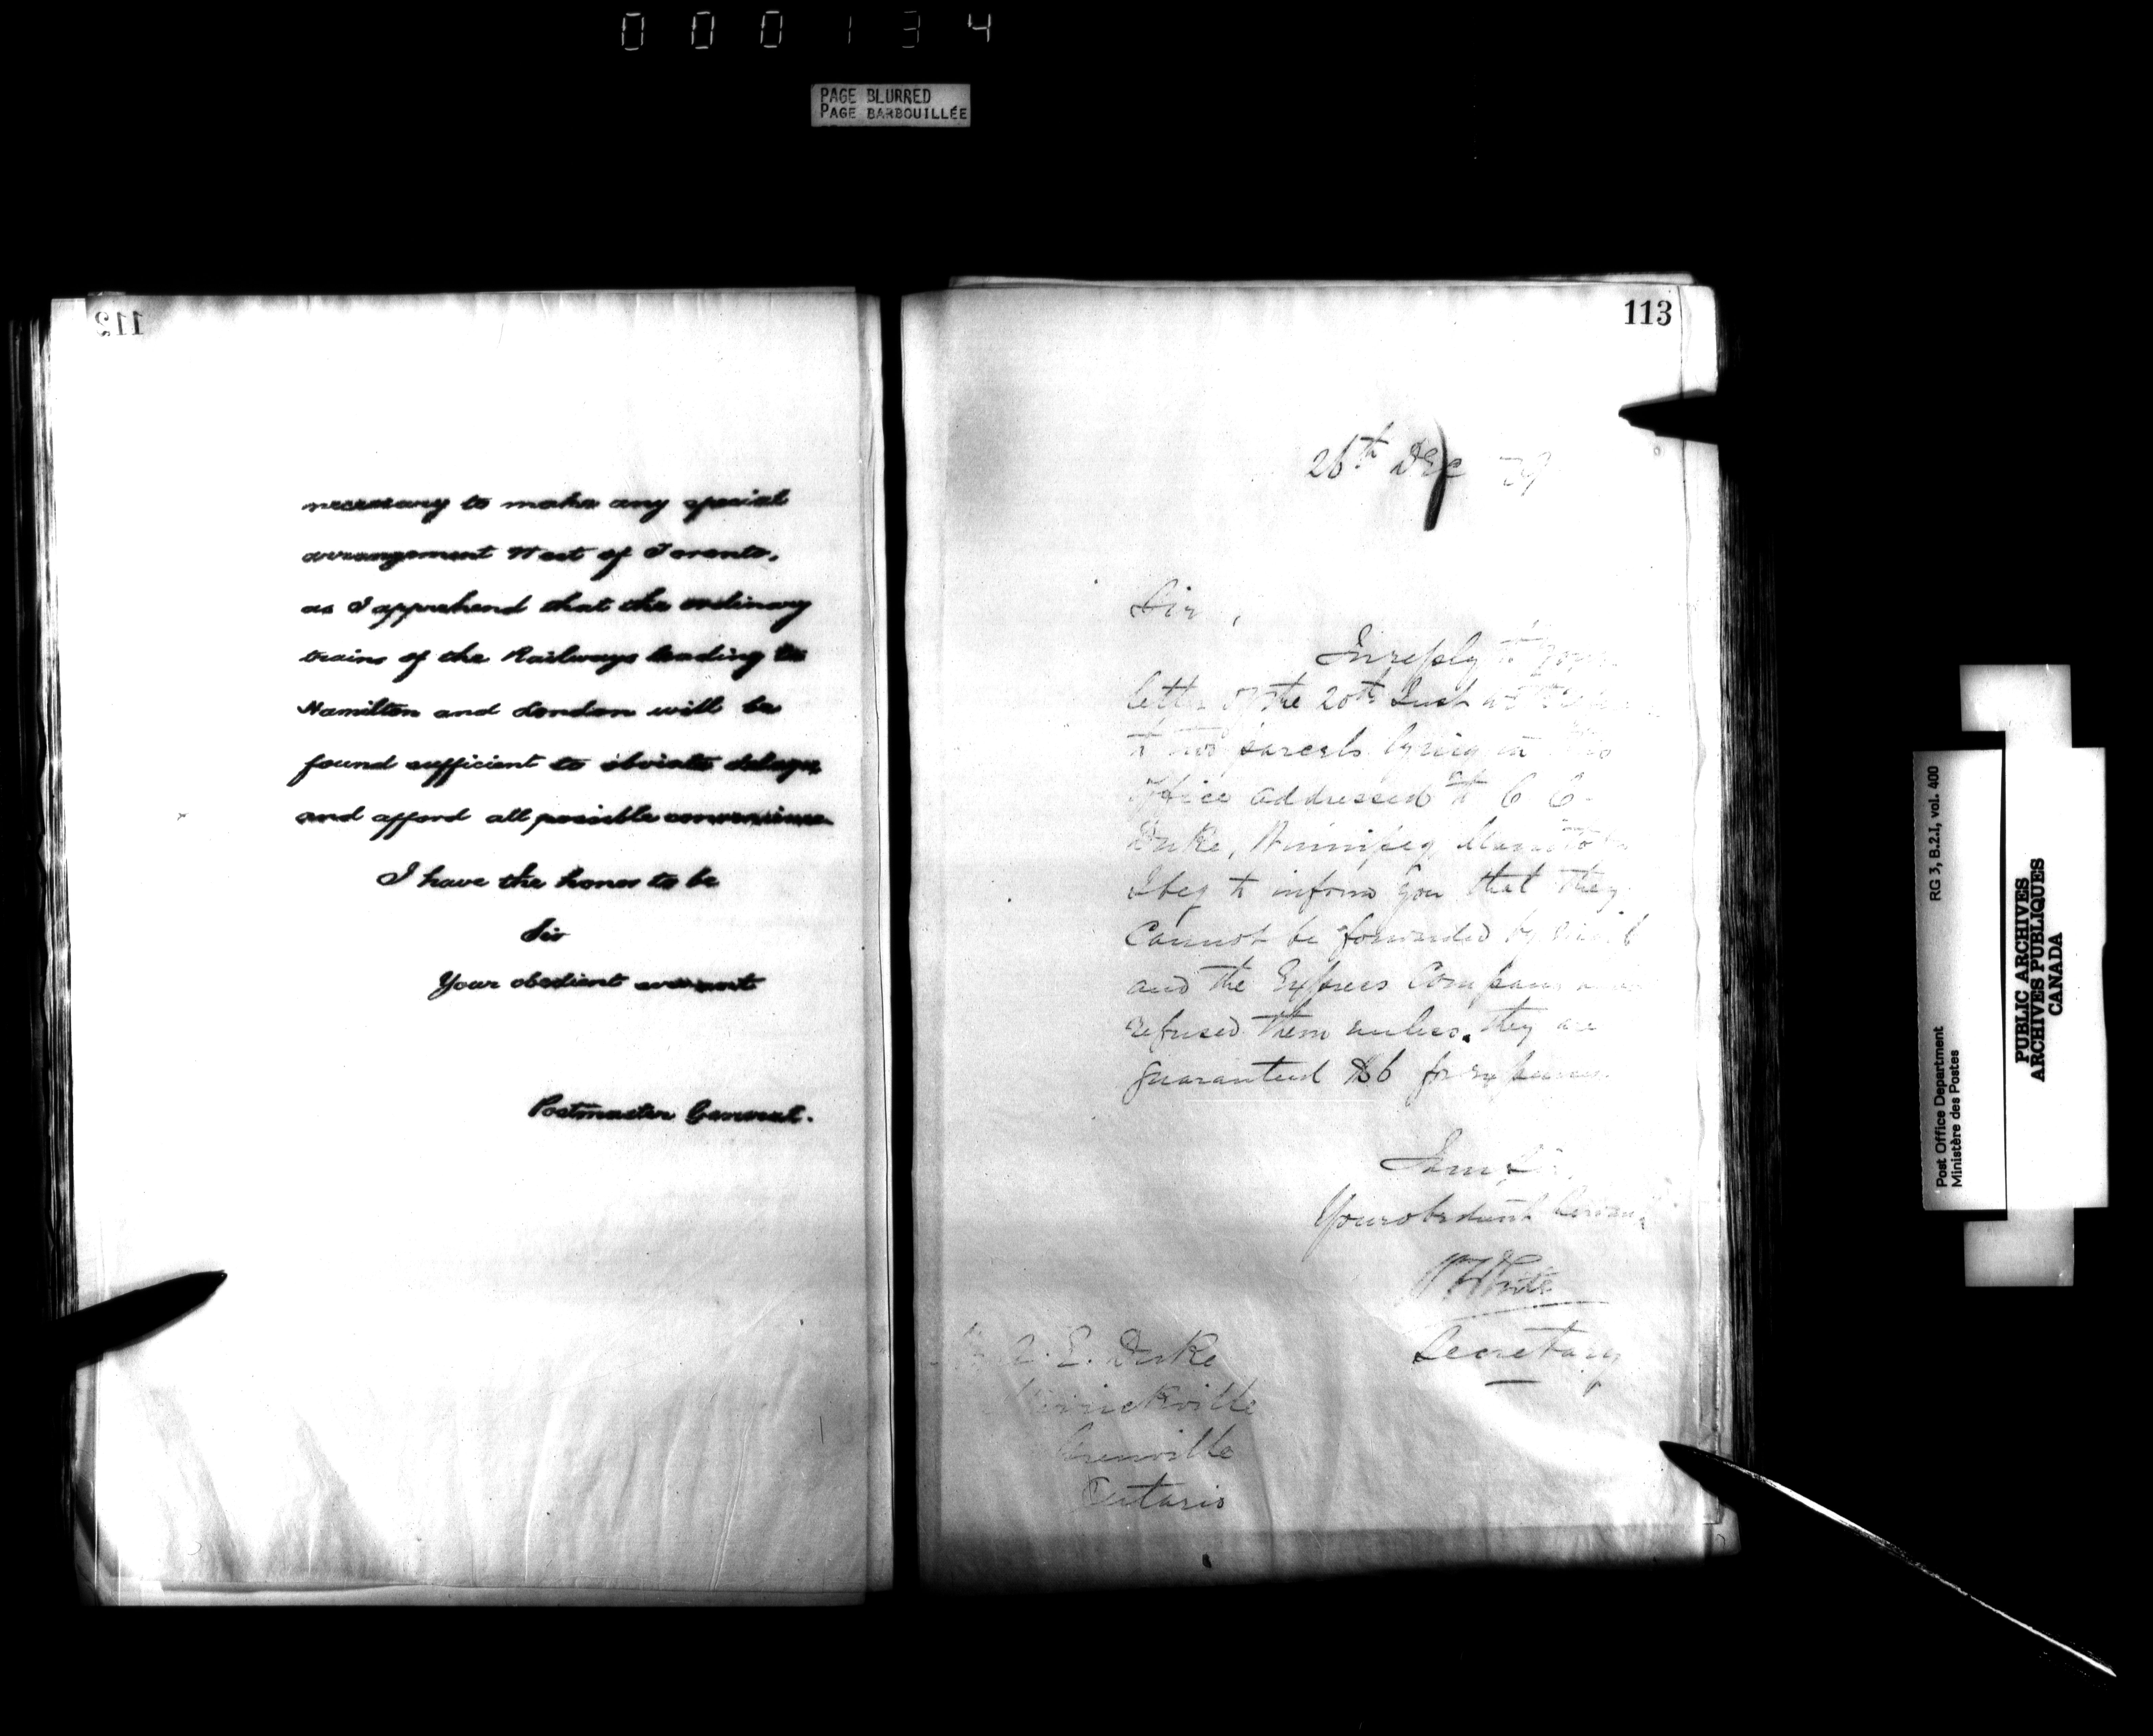 000134
PAGE BLURRED
PAGE BARBOUILLÉE
112
necessary to make any special
arrangement West of Toronto,
as I apprehend that the ordinary
trains of the Railways leading to
Hamilton and London will be
found sufficient to obviate delays,
and afford all possible convenience
I have the honor to be
Sir
Your obedient servant
Postmaster General.
113
26th Dec 79
Sir,
In reply to your
letter of the 20th Inst
to two parcels lying in this
Office addressed to C C
Duke, Winnipeg Manitoba
I beg to inform you that they
Cannot be forwarded by mail
and the Express Company
refused them unless they are
guaranteed $6 for expenses
I am Sir,
Your obedient Servant
W White
Secretary
E. Duke
Merrickville
Grenville
Ontario
Post Office Department
Ministère des Postes
RG 3, B.2.I, vol. 400
PUBLIC ARCHIVES
ARCHIVES PUBLIQUES
CANADA